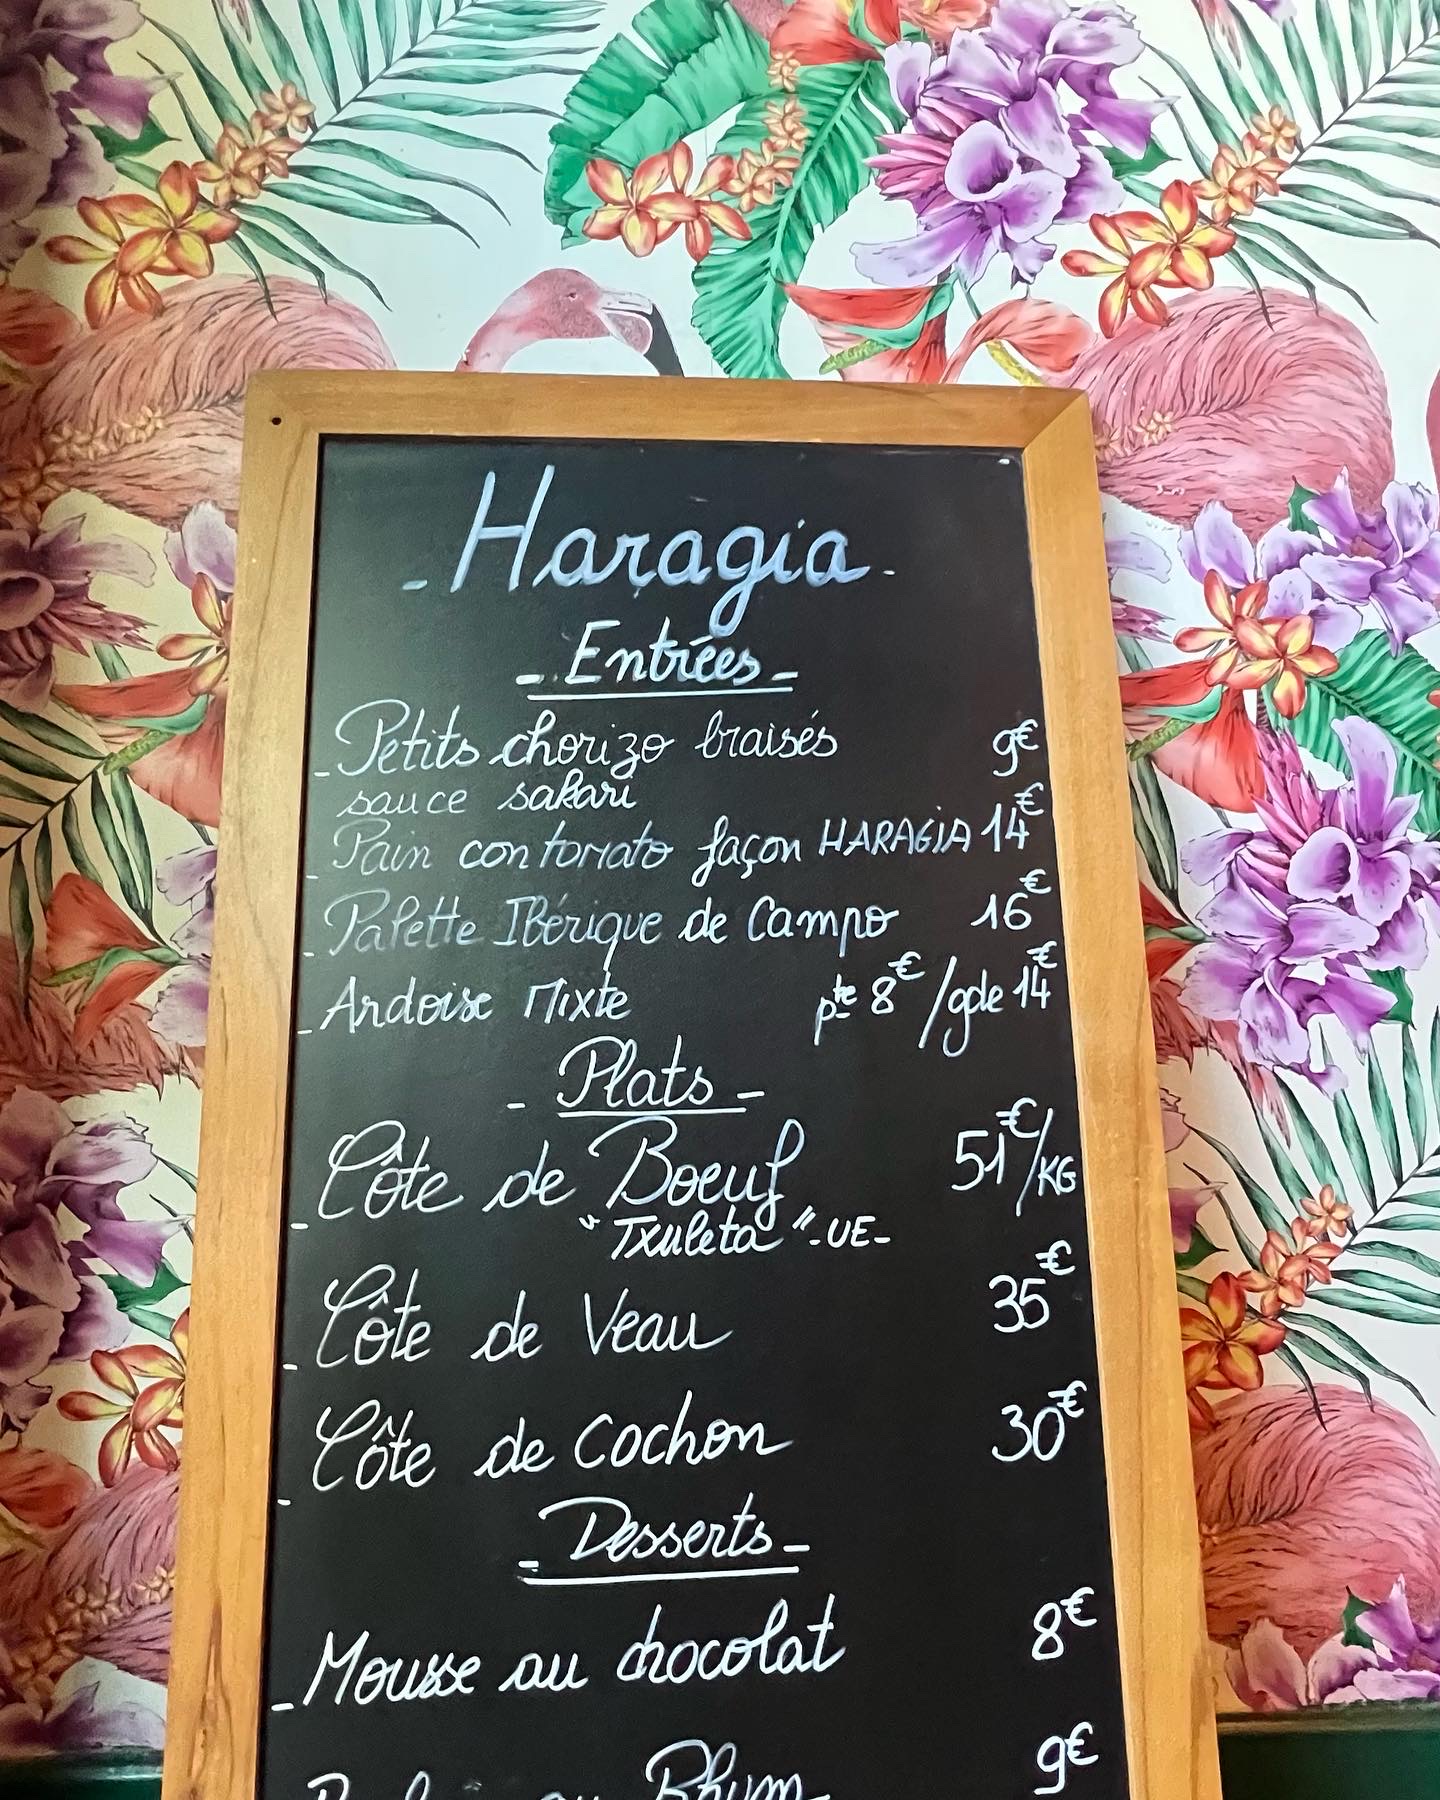 - Haragia -
- Entrées -
- Petits chorizo braisés 9€
sauce sakari
- Pain con tomato façon HARAGIA 14€
- Palette Ibérique de Campo 16€
- Ardoise Mixte pte 8€/gde 14€
- Plats -
- Côte de Boeuf 51€/KG
"Txuleta" -UE-
- Côte de Veau 35€
- Côte de Cochon 30€
- Desserts -
- Mousse au chocolat 8€
au Rhum 9€